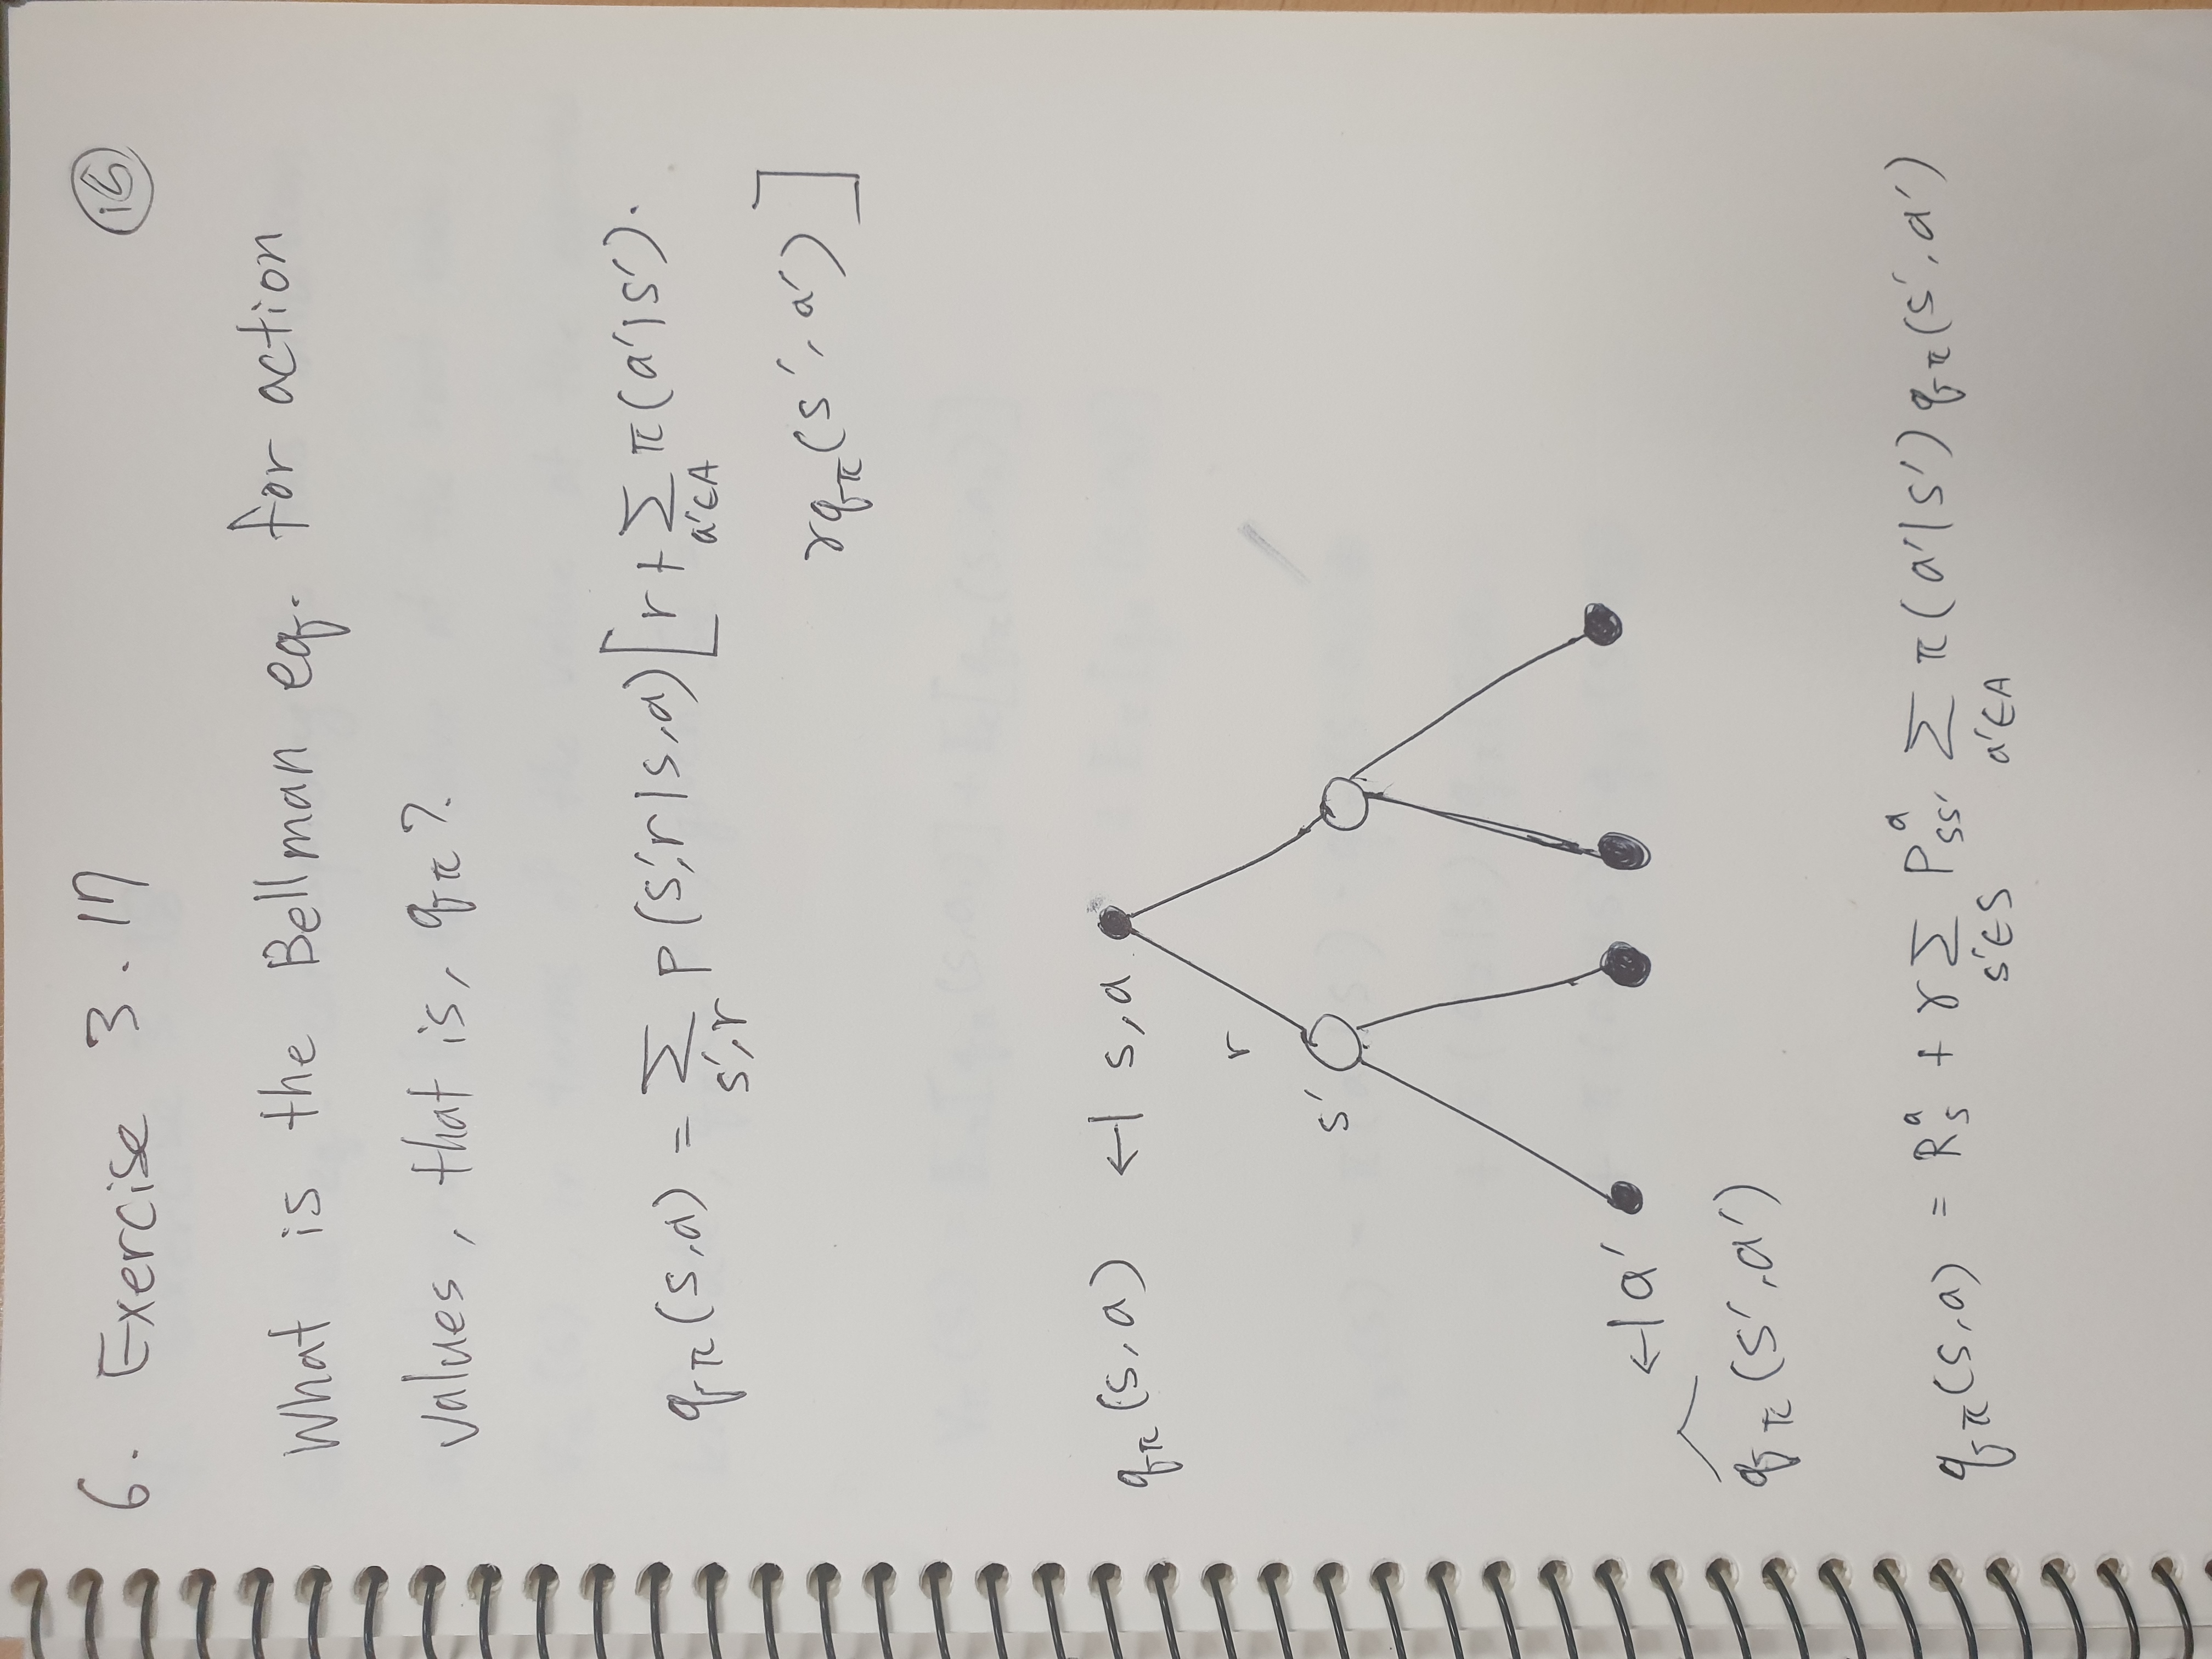 6. Exercise 3.17
15
What is the Bellman eq. for action
values, that is, qπ?
qπ(s,a) = Σ_{s',r} p(s',r|s,a)[r + Σ_{a'∈A} π(a'|s')·
γqπ(s',a')]
qπ(s,a) ↤ s,a
r
s'
↤ a'
qπ(s',a')
qπ(s,a) = R_s^a + γ Σ_{s'∈S} P_{ss'}^a Σ_{a'∈A} π(a'|s') qπ(s',a')